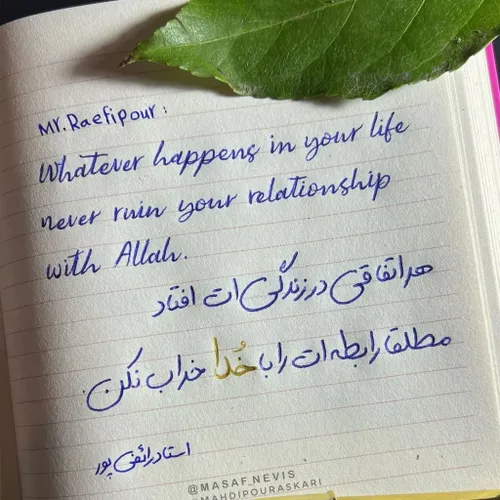 Mr. Raefipour:
Whatever happens in your life
never ruin your relationship
with Allah.
هر اتفاقی در زندگی ات افتاد
مطلقا رابطه ات را با خُدا خراب نکن.
استاد رائفی پور
@MASAF_NEVIS
@MAHDIPOURASKARI